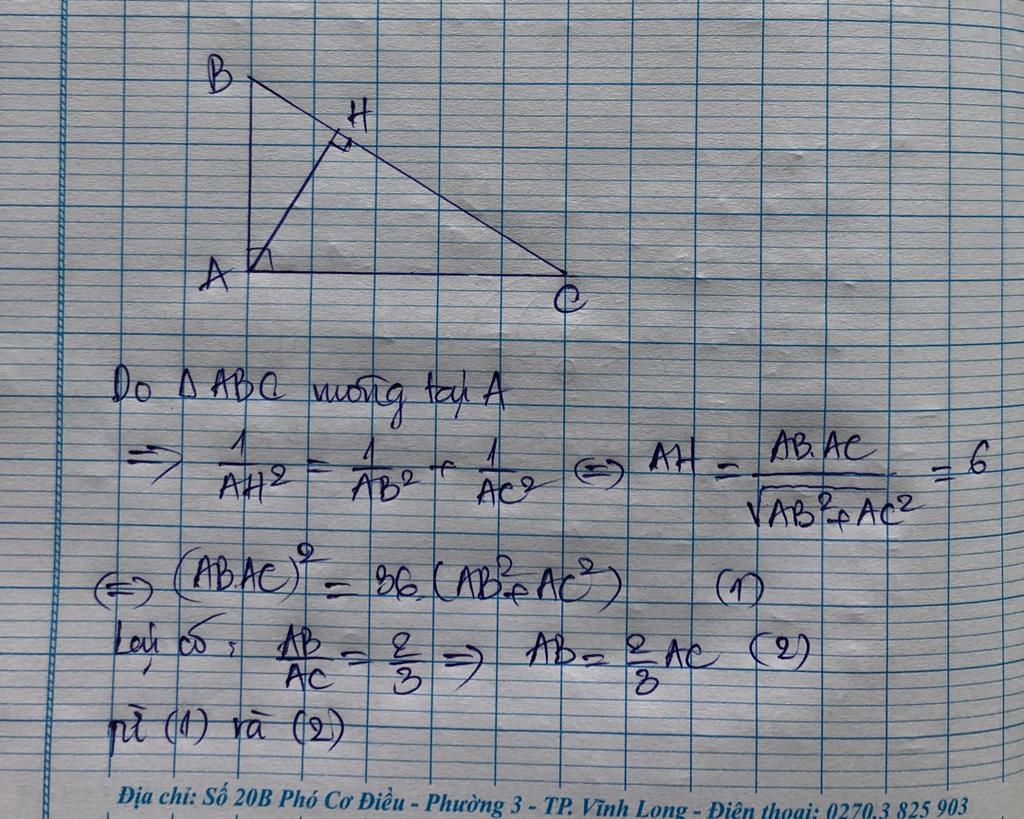 B
H
A
C
Do Δ ABC vuông tại A
=> 1/AH² = 1/AB² + 1/AC² <=> AH = AB.AC/√(AB²+AC²) = 6
<=> (AB.AC)² = 36.(AB²+AC²) (1)
Lại có: AB/AC = 2/3 => AB = 2/3 AC (2)
từ (1) và (2)
Địa chỉ: Số 20B Phó Cơ Điều - Phường 3 - TP. Vĩnh Long - Điện thoại: 0270.3 825 903